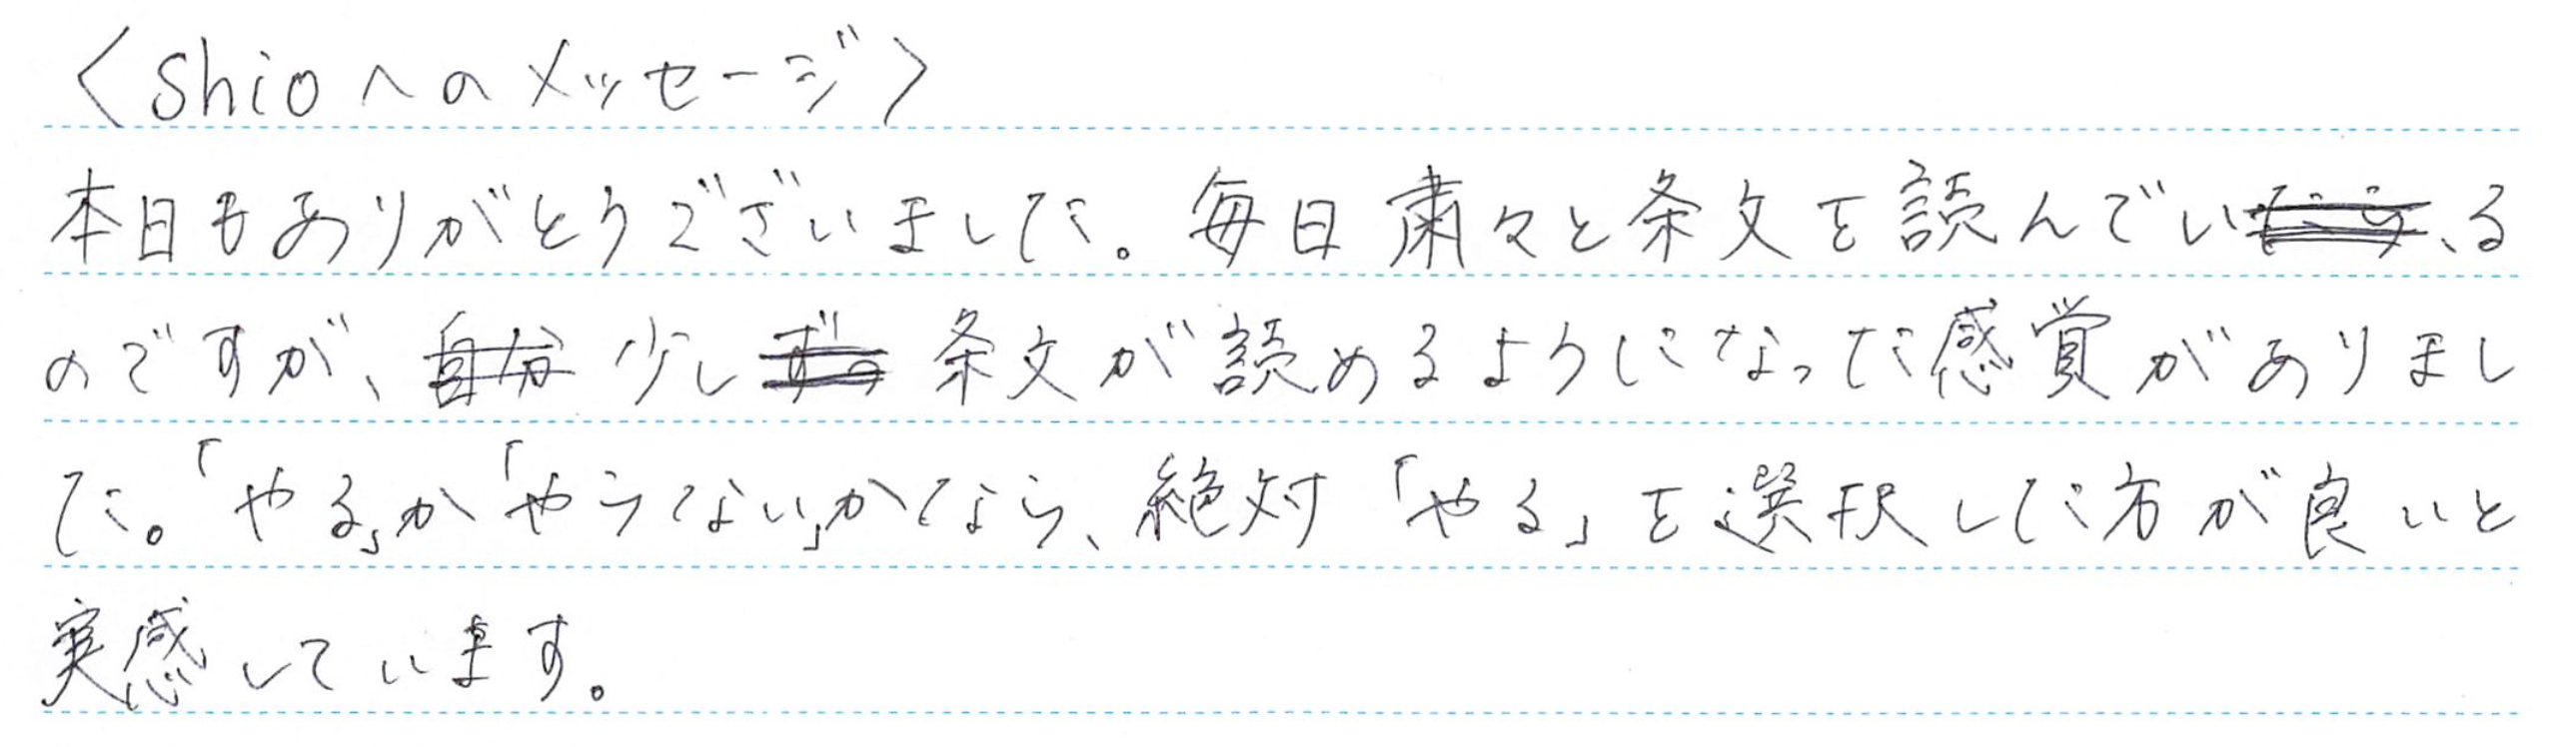 〈Shioへのメッセージ〉
本日もありがとうございました。毎日粛々と条文を読んでいる
のですが、自分少しずつ条文が読めるようになった感覚がありまし
た。「やる」か「やらない」かなら、絶対「やる」を選択した方が良いと
実感しています。